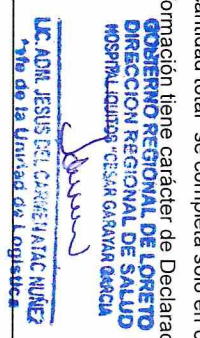 antidad total se completa solo en c
ormación tiene carácter de Declarac
GOBIERNO REGIONAL DE LORETO
DIRECCION REGIONAL DE SALUD
HOSPITAL IQUITOS "CESAR GARAYAR GARCIA
LIC. ADM. JESUS DEL CARMEN ATAC NUÑEZ
Jefe de la Unidad de Logistica